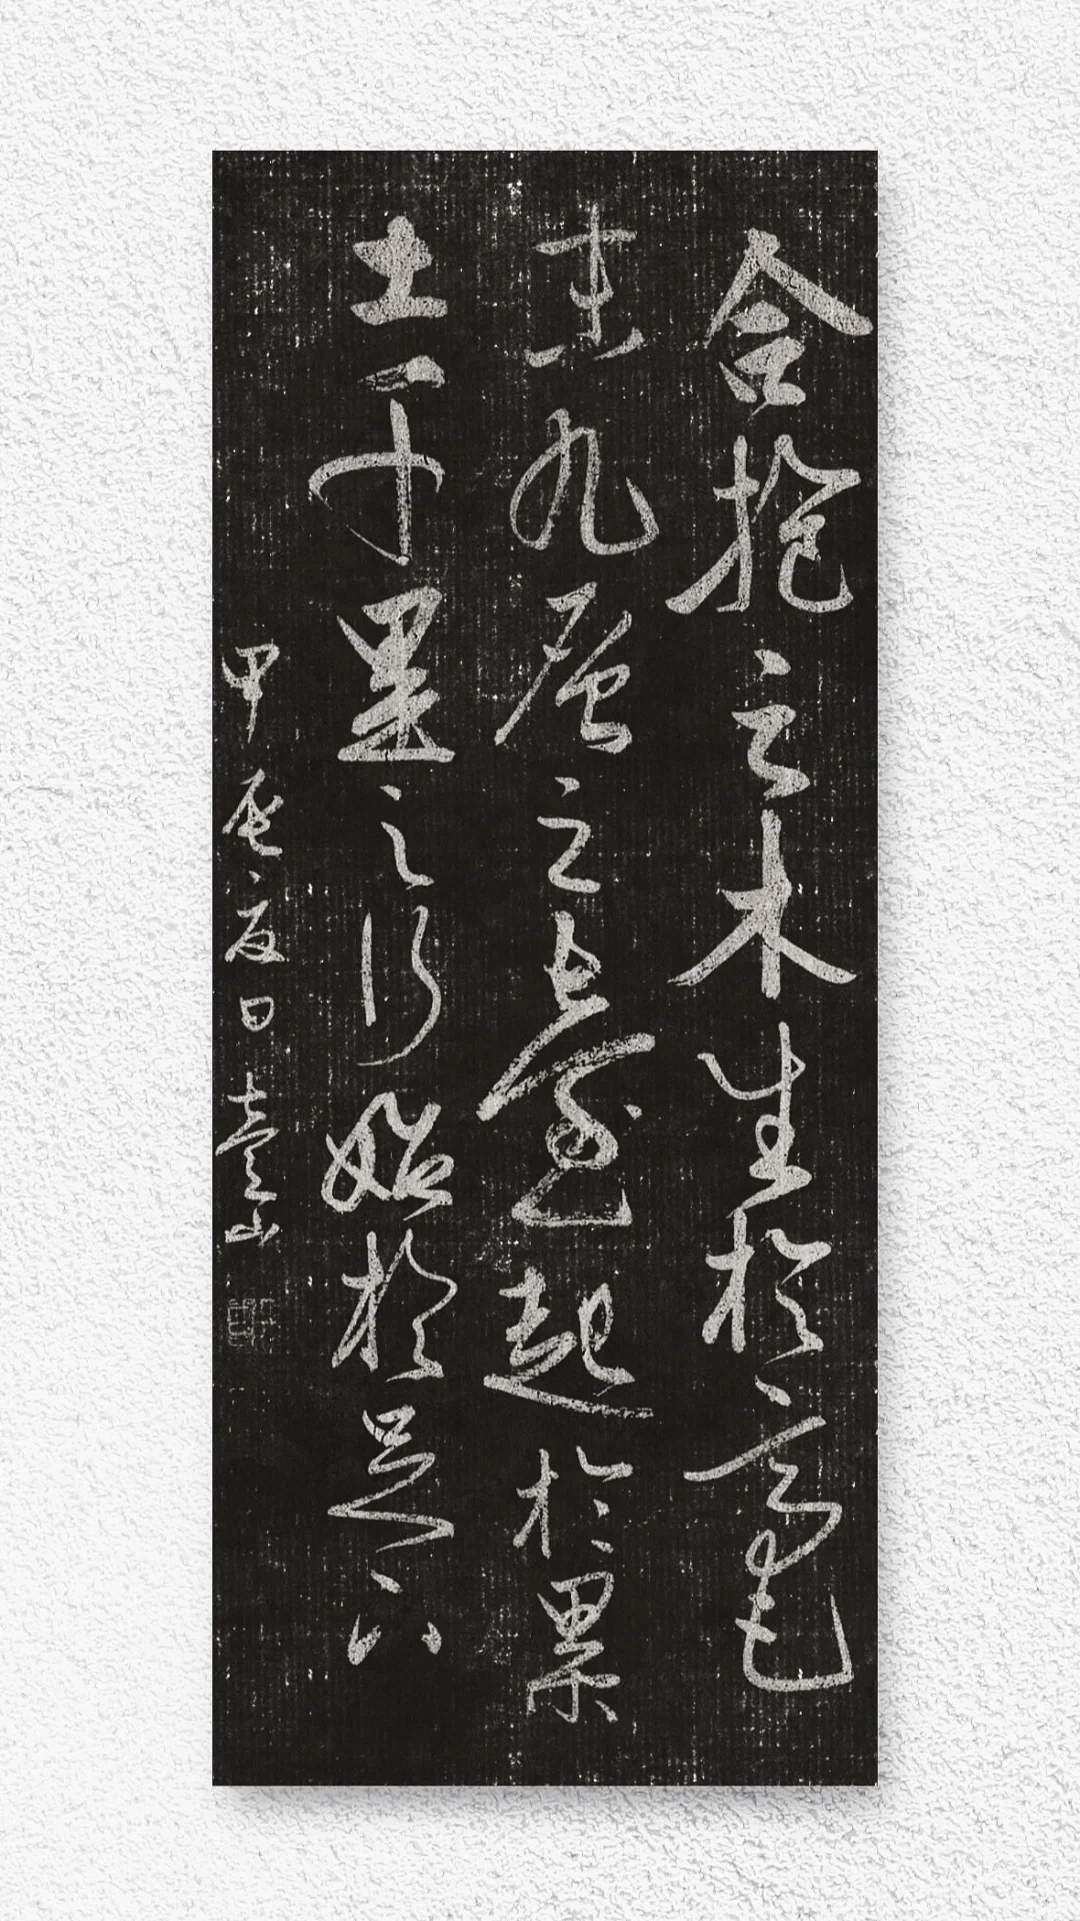 合抱之木生於毫
末九層之臺起於累
土千里之行始於足下
甲辰夏日